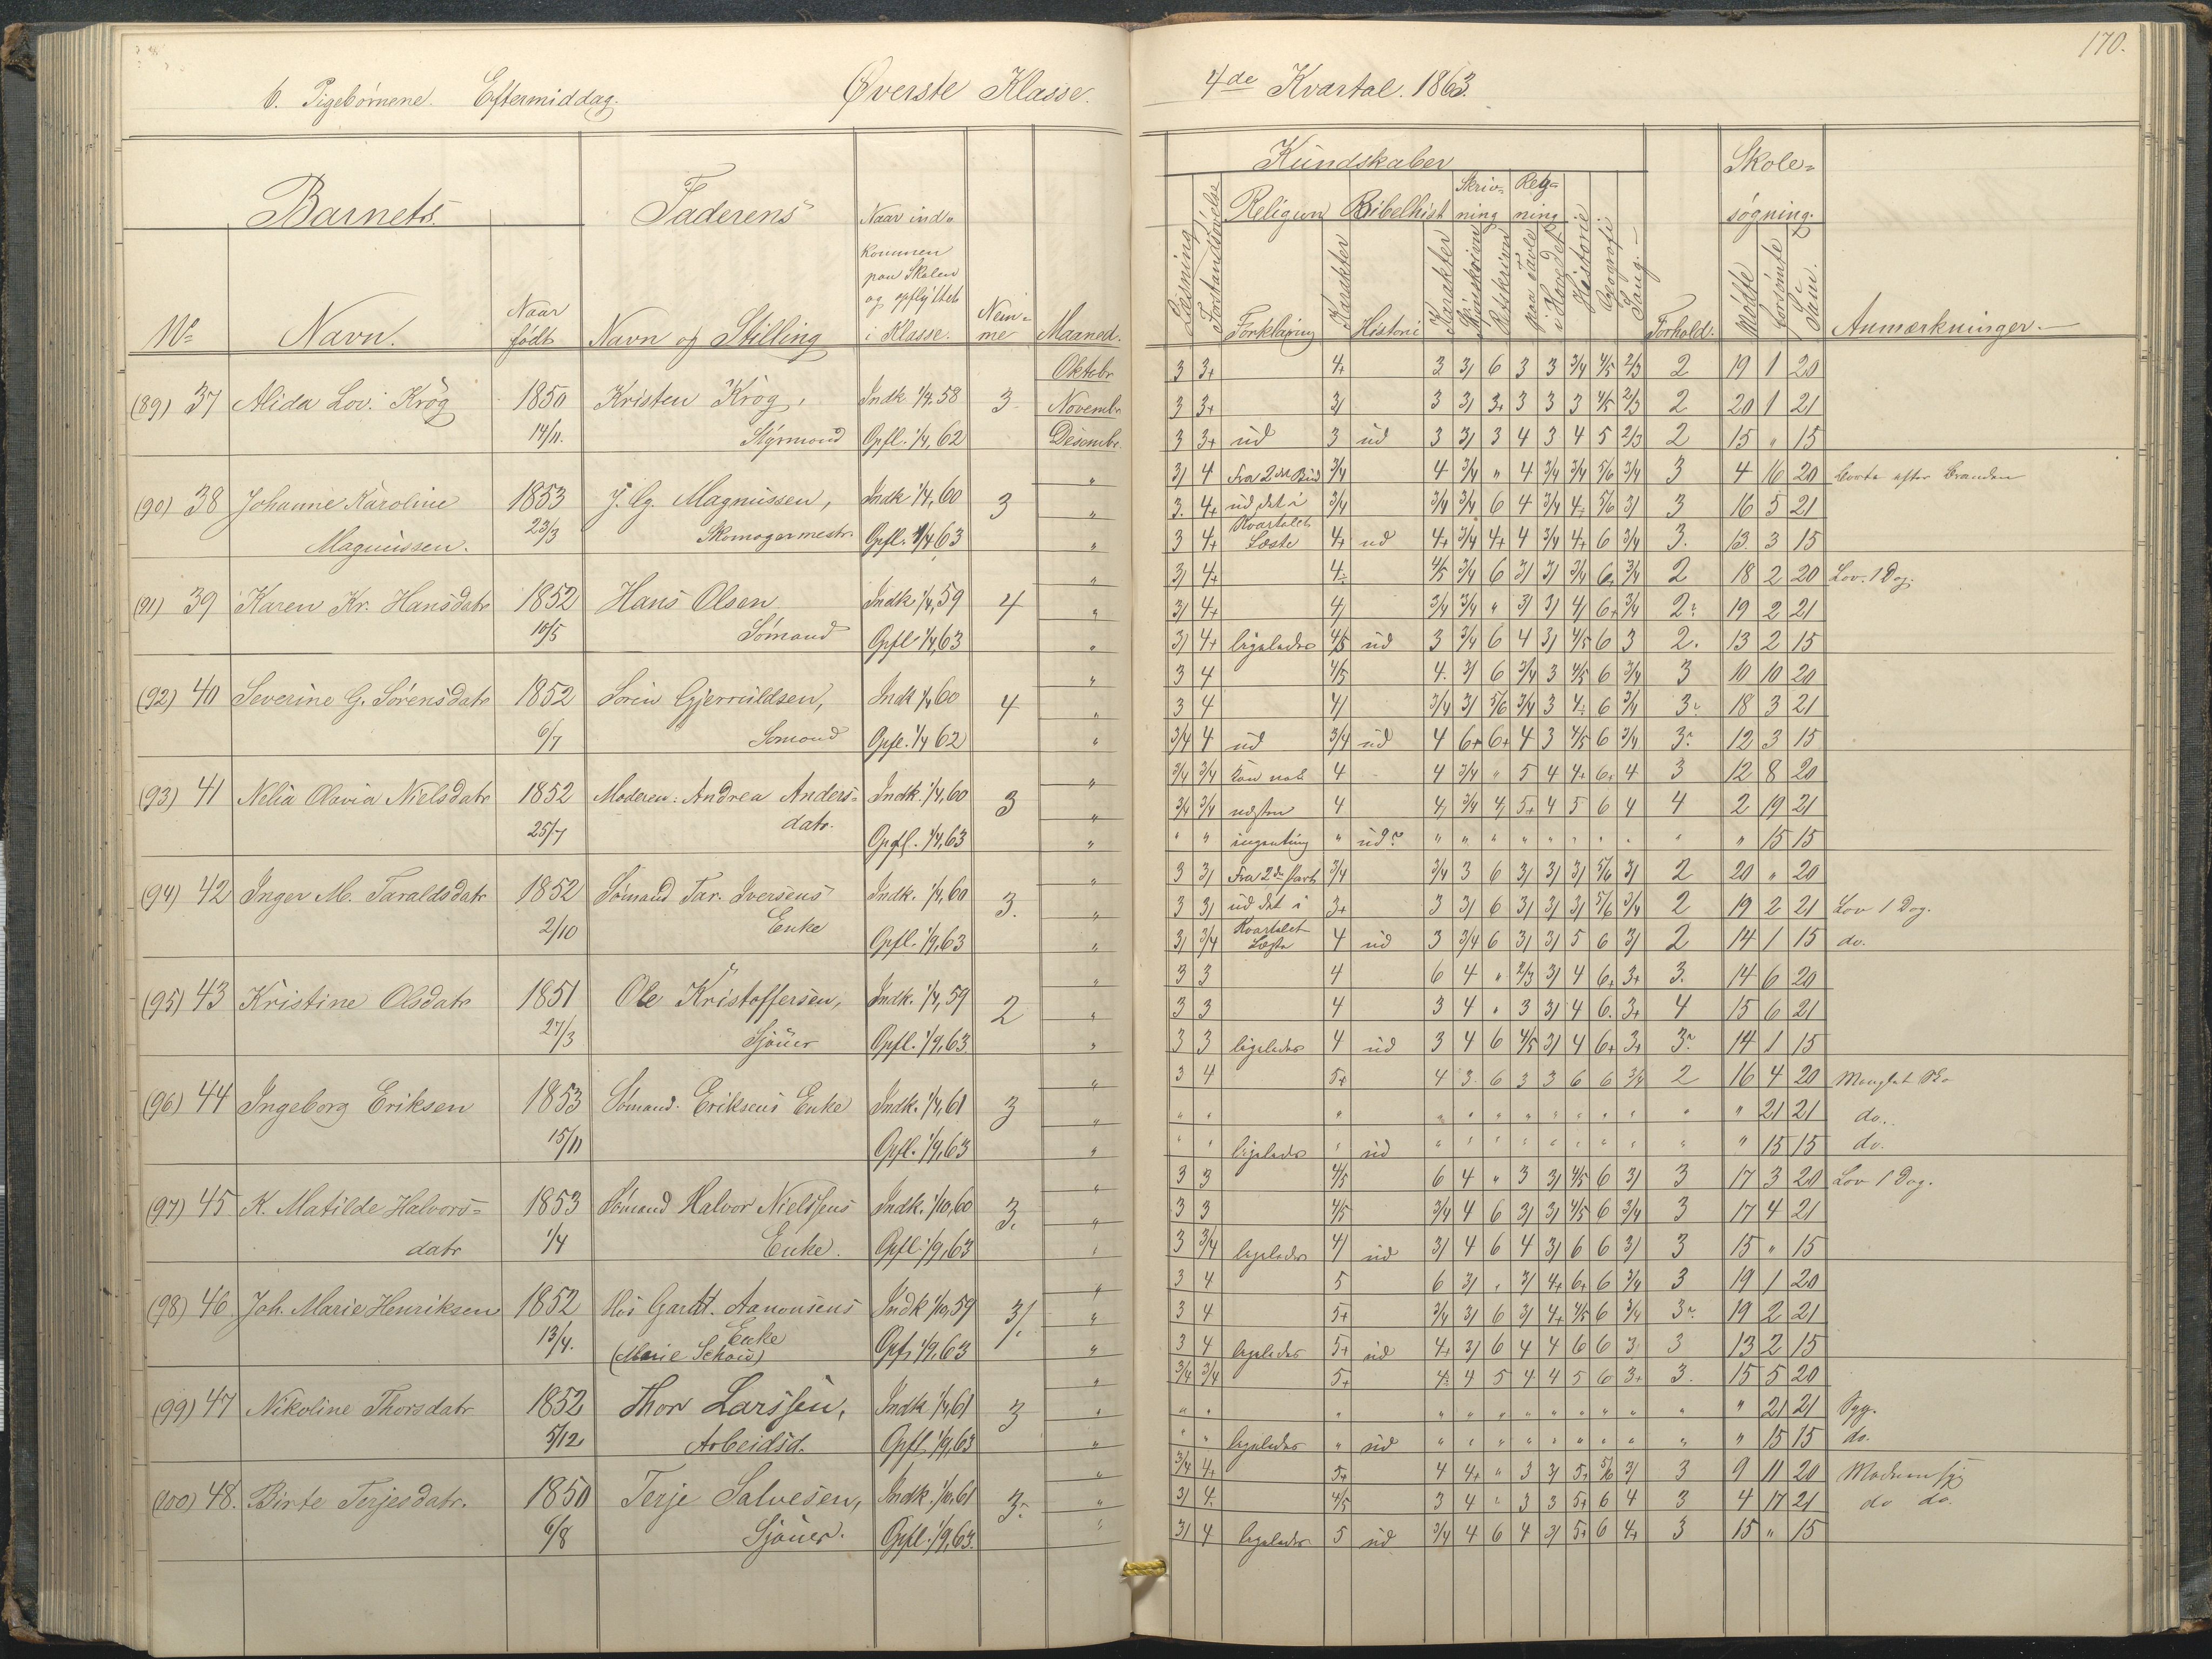 170.
b. Pigebørnene. Eftermiddag. Øverste Klasse. 4de Kvartal. 1863.
Barnets Faderens Naar ind= Kundskaber Skole=
kommen Religion Bibelhist Skriv= Reg= søgning.
paa Skolen ning ning
og opflyttet
No Navn. Naar født Navn og Stilling i Klasse. Nem= me Maaned. Læsning Forstandsøvelse Forklaring Karakter Historie Karakter Skjønskrivn Retskrivn paa Tavle i Hovedet Historie Geografi Sang. Forhold: Mødte Forsømte Sum. Anmærkninger.
Oktobr 3 3+ 4+ 3 3/ 6 3 3 3/4 4/5 2/3 2 19 1 20
(89) 37 Alida Lov. Krøg 1850 Kristen Krøg, Indk 1/4 58 3. Novembr 3 3+ 3/ 3 3/ 3+ 3 3 3 4/5 2/3 2 20 1 21
14/11. Styrmand Opfl. 1/4, 62 Desembr. 3 3+ ud 3 ud 3 3/ 3 4 3 4 5 2/3 2 15 " 15
" 3/ 4 Fra 2det Bud 3/4 4 3/4 " 4 3/4 3/4 5/6 3/4 3 4 16 20 Borte efter Branden
(90) 38 Johanne Karoline 1853 J. Cg. Magnussen, Indk 1/4, 60 3 " 3. 4+ ud det i 3/4 3/4 3/4 6 4 3/4 4 5/6 3/ 3 16 5 21
Magnussen. 23/3 Skomagermestr. Opfl. 1/4 63 " 3 4+ Kvartalet Læste 4+ ud 4+ 3/4 4+ 4 3/4 4+ 6 3/4 3. 13. 3 15
" 3/ 4+ 4 4/5 3/4 6 3/ 3/ 3/4 6+ 3/4 2 18 2 20 Lov. 1 Dag.
(91) 39 Karen Kr. Hansdatr 1852 Hans Olsen Indk 1/4, 59 4 " 3/ 4+ 4/ 3/4 3/4 " 3/ 3/ 4/ 6+ 3/4 2 19 2 21
10/5 Sømand Opfl 1/4, 63 " 3/ 4+ ligeledes 4/5 ud 3 3/4 6 4 3/ 4/5 6 3 2. 13 2 15
" 3 4 4/5 4. 3/ 6 3/4 3 4/5 6 3/4 3 10 10 20
(92) 40 Severine G. Sørensdatr 1852 Søren Gjerruldsen, Indk 1/4 60 4 " 3 4 4/ 3/4 3/ 5/6 3/4 3 4 6 3/4 3 18 3 21
6/7 Sømand Opfl. 1/4 62 " 3/4 4 ud 3/4 ud 4 6+ 6+ 4 3 4/5 6 3/4 3 12 3 15
" 3/4 3/4 Kan nok 4 - 4 3/4 " 5 4 4+ 6+ 4 3 12 8 20
(93) 41 Nelia Olavia Nielsdatr 1852 Moderen: Andrea Anders= Indk. 1/4, 60 3 " 3/4 3/4 næsten 4 4/ 3/4 4/ 5+ 4 5 6 4 4 2 19 21
25/7 datr. Opfl. 1/4, 63 " " " ingenting " ud? " " " " " " " " " " 15 15
" 3 3/ Fra 2den Part 3/4 3/4 3 6 3/ 3/ 3/ 5/6 3/ 2 20 " 20
(94) 42 Inger M. Taraldsdatr 1852 Sømand Tar. Iversens Indk. 1/4, 60 3. " 3 3/ ud det i 3+ 3 3/ 6 3/ 3/ 3/ 5/6 3/4 2 19 2 21 Lov 1 Dag.
2/10 Enke Opfl. 1/9, 63 " 3/ 3/4 Kvartalet Læste 4 ud 3 3/4 6 3/ 3/ 5 6 3/ 2 14 1 15 do.
3 3 4 6 4 " 2/3 3/ 4 6+ 3+ 3. 14 6 20
(95) 43 Kristine Olsdatr 1851 Ole Kristoffersen, Indk. 1/4, 59 2 " 3 3 4 3 4 " 3 3/ 4 6. 3+ 4 15 6 21
27/3 Sjøuer Opfl. 1/9, 63. " 3 3 ligeledes 4 ud 3 4 6 4/5 3/ 4 6+ 3+ 3 14 1 15
" 3 4 5+ 4 3. 6 3 3 6 6 3/4 2 16 4 20
(96) 44 Ingeborg Eriksen 1853 Sømand. Eriksens Enke Indk. 1/4, 61 3 " " " " " " " " " " " " " " 21 21 do.
15/11 Opfl. 1/9, 63 " " " ligeledes " ud " " " " " " " " " " 15 15 do.
" 3 3 4/5 6 4 " 3 3/ 4/5 6 3/ 3 17 3 20 Lov 1 Dag.
(97) 45 K. Matilde Halvors= 1853 Sømand Halvor Nielssens Indk. 1/10, 60 3. " 3 3 4/5 3/4 4 6 3/ 3/ 4/5 6 3/4 3 17 4 21
datr 1/4 Enke. Opfl. 1/9, 63 " 3 3/4 ligeledes 4/ ud 3/ 4 6 4 3/ 6 6 3/ 3 15 " 15
" 3 4 5 6 3/ " 3/ 4+ 6+ 6 3/4 3 19 1 20
(98) 46 Joh. Marie Henriksen 1852 Hos Aanonsens Indk 1/10, 59 3/. " 3 4 5+ 3/4 3/ 6 3/ 4+ 4/5 6 3/4 3 19 2 21
13/4. Enke Opf. 1/9, 63 " 3 4 ligeledes 5+ ud 4+ 3/ 6 4 4 6 6 3 3 13 2 15
(Marie Schow)
" 3/4 3/4 5+ 4 4 5 4 4 5 6 3+ 3. 15 5 20
(99) 47 Nikoline Thorsdatr 1852 Thor Larssen, Indk 1/4, 61 3 " " " " " " " " " " " " " " 21 21 Syg.
5/12 Arbeidsd. Opfl. 1/9, 63 " " " ligeledes " ud " " " " " " " " " " 15 15 do.
" 3/4 4+ 5+ 4 4+ " 3 3/ 5+ 5/6 3/ 3 9 11 20
(100) 48. Birte Terjesdatr. 1850 Terje Salvesen, Indk. 1/10, 61 3 " 3/ 4 4/5 3 4 " 3 3 5+ 6 4 3 4 17 21 do do.
6/8 Sjøuer. Opfl. 1/9, 63. " 3/ 4 ligeledes 5 ud 3/4 4 6 4 3/ 5+ 6 4+ 3 15 " 15